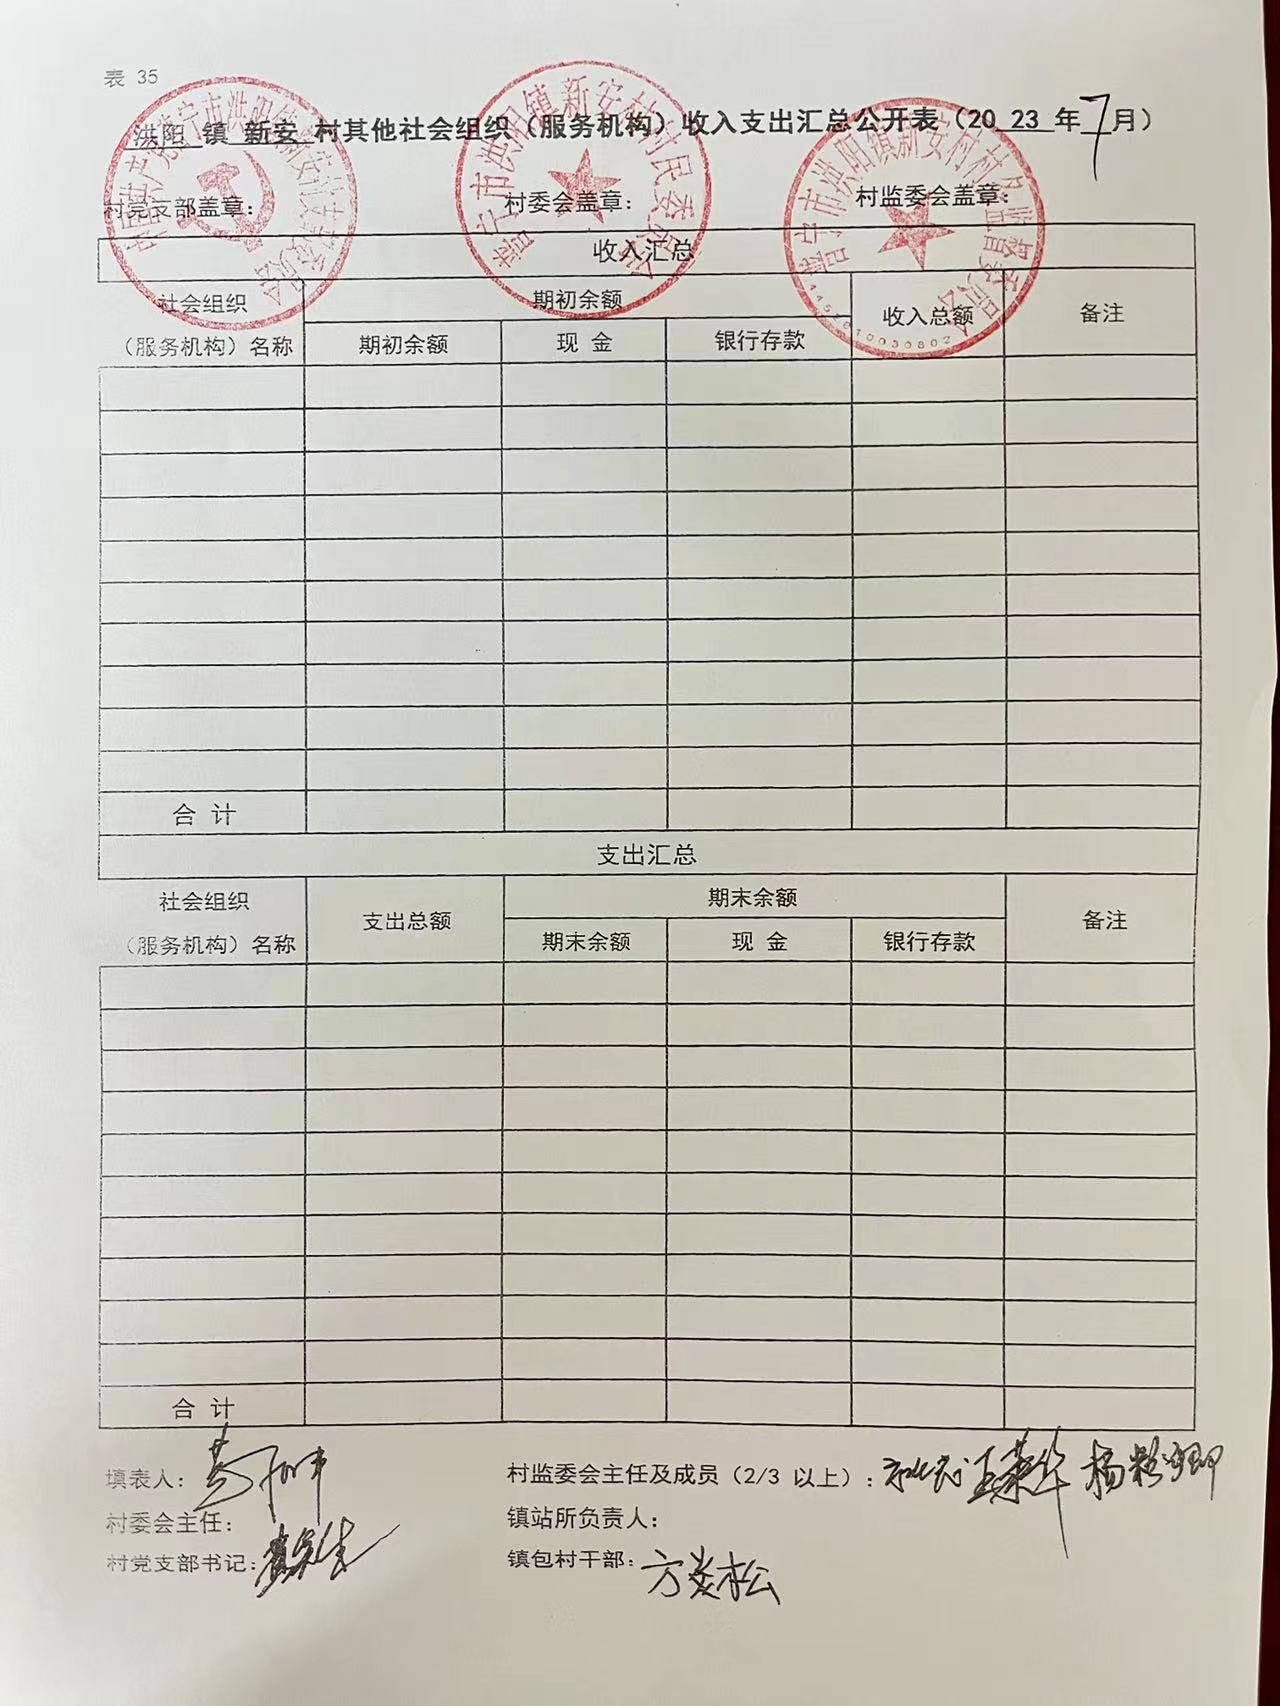 表 35
洪阳 镇 新安 村其他社会组织（服务机构）收入支出汇总公开表（20 23 年 7 月）
村党支部盖章： 村委会盖章： 村监委会盖章：
中国共产党普宁市洪阳镇新安村支部委员会
普宁市洪阳镇新安村村民委员会
普宁市洪阳镇新安村村务监督委员会
收入汇总
社会组织 期初余额 收入总额 备注
（服务机构）名称 期初余额 现 金 银行存款
合 计
支出汇总
社会组织 支出总额 期末余额 备注
（服务机构）名称 期末余额 现 金 银行存款
合 计
填表人： 村监委会主任及成员（2/3 以上）：
村委会主任： 镇站所负责人：
村党支部书记： 镇包村干部：